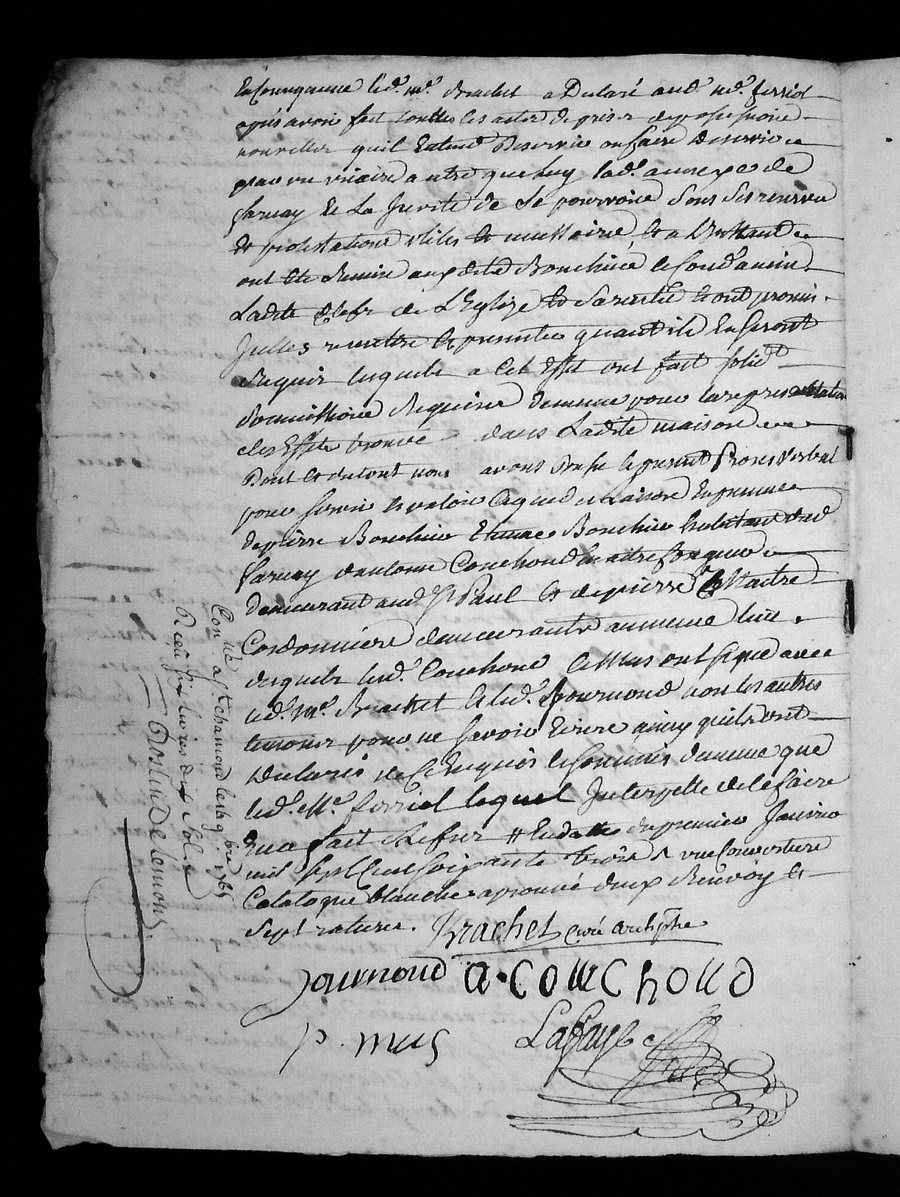 En Consequence led. mr. Brachet a Declaré aud. mr. ferriol
apres avoir fait touttes les actes de prise de possession
nouvelles quil Entend Desservir ou faire Desservir
par un vicaire autre que luy lad. annexe de
farnay et La Jurité de Se pourvoir Sous Ses reserves
et protestations utiles et necessaire, et a L'Instant
ont été Remise aux dits Bonchire et
Ladite Clefs de L'Eglize et Sacristie et ont promis
Juelles remettre et presenter quant ils En Seront
Requis lesquels a Cet Effet ont fait
Soumissions Requises de meme pour la representation
des Effets trouvé dans Ladite maison
Dont et du tout nous avons Dressé le present Proces verbal
pour Servir et valoir Ce que de Raison En presence
de pierre Etienne habitant dud.
farnay d'antoine Couchoud maitre
demeurant aud. St Paul et de pierre Maitre
Cordonnier demeurants au meme lieu
desquels led. Couchoud et Mus ont signé avec
led. mr. Brachet et led. Journoud non les autres
temoins pour ne Savoir Ecrire ainsy quils ont
Declarés de Ce Enquis et Sommés de meme que
led. Mr. ferriol lequel Interpellé de le faire
En a fait Reffus # En datte du premier Janvier
mil Sept Cent Soixante trois & vue Couverture
Catalogue blanche aprouvé deux Renvoy et
Sept ratures. Brachet Curé archiptre
Journoud a. Couchoud
p. mus Laffaye
Con lé a St chamond le 9bre 1765
Reçu livres dix Sols
Rostin Delemons